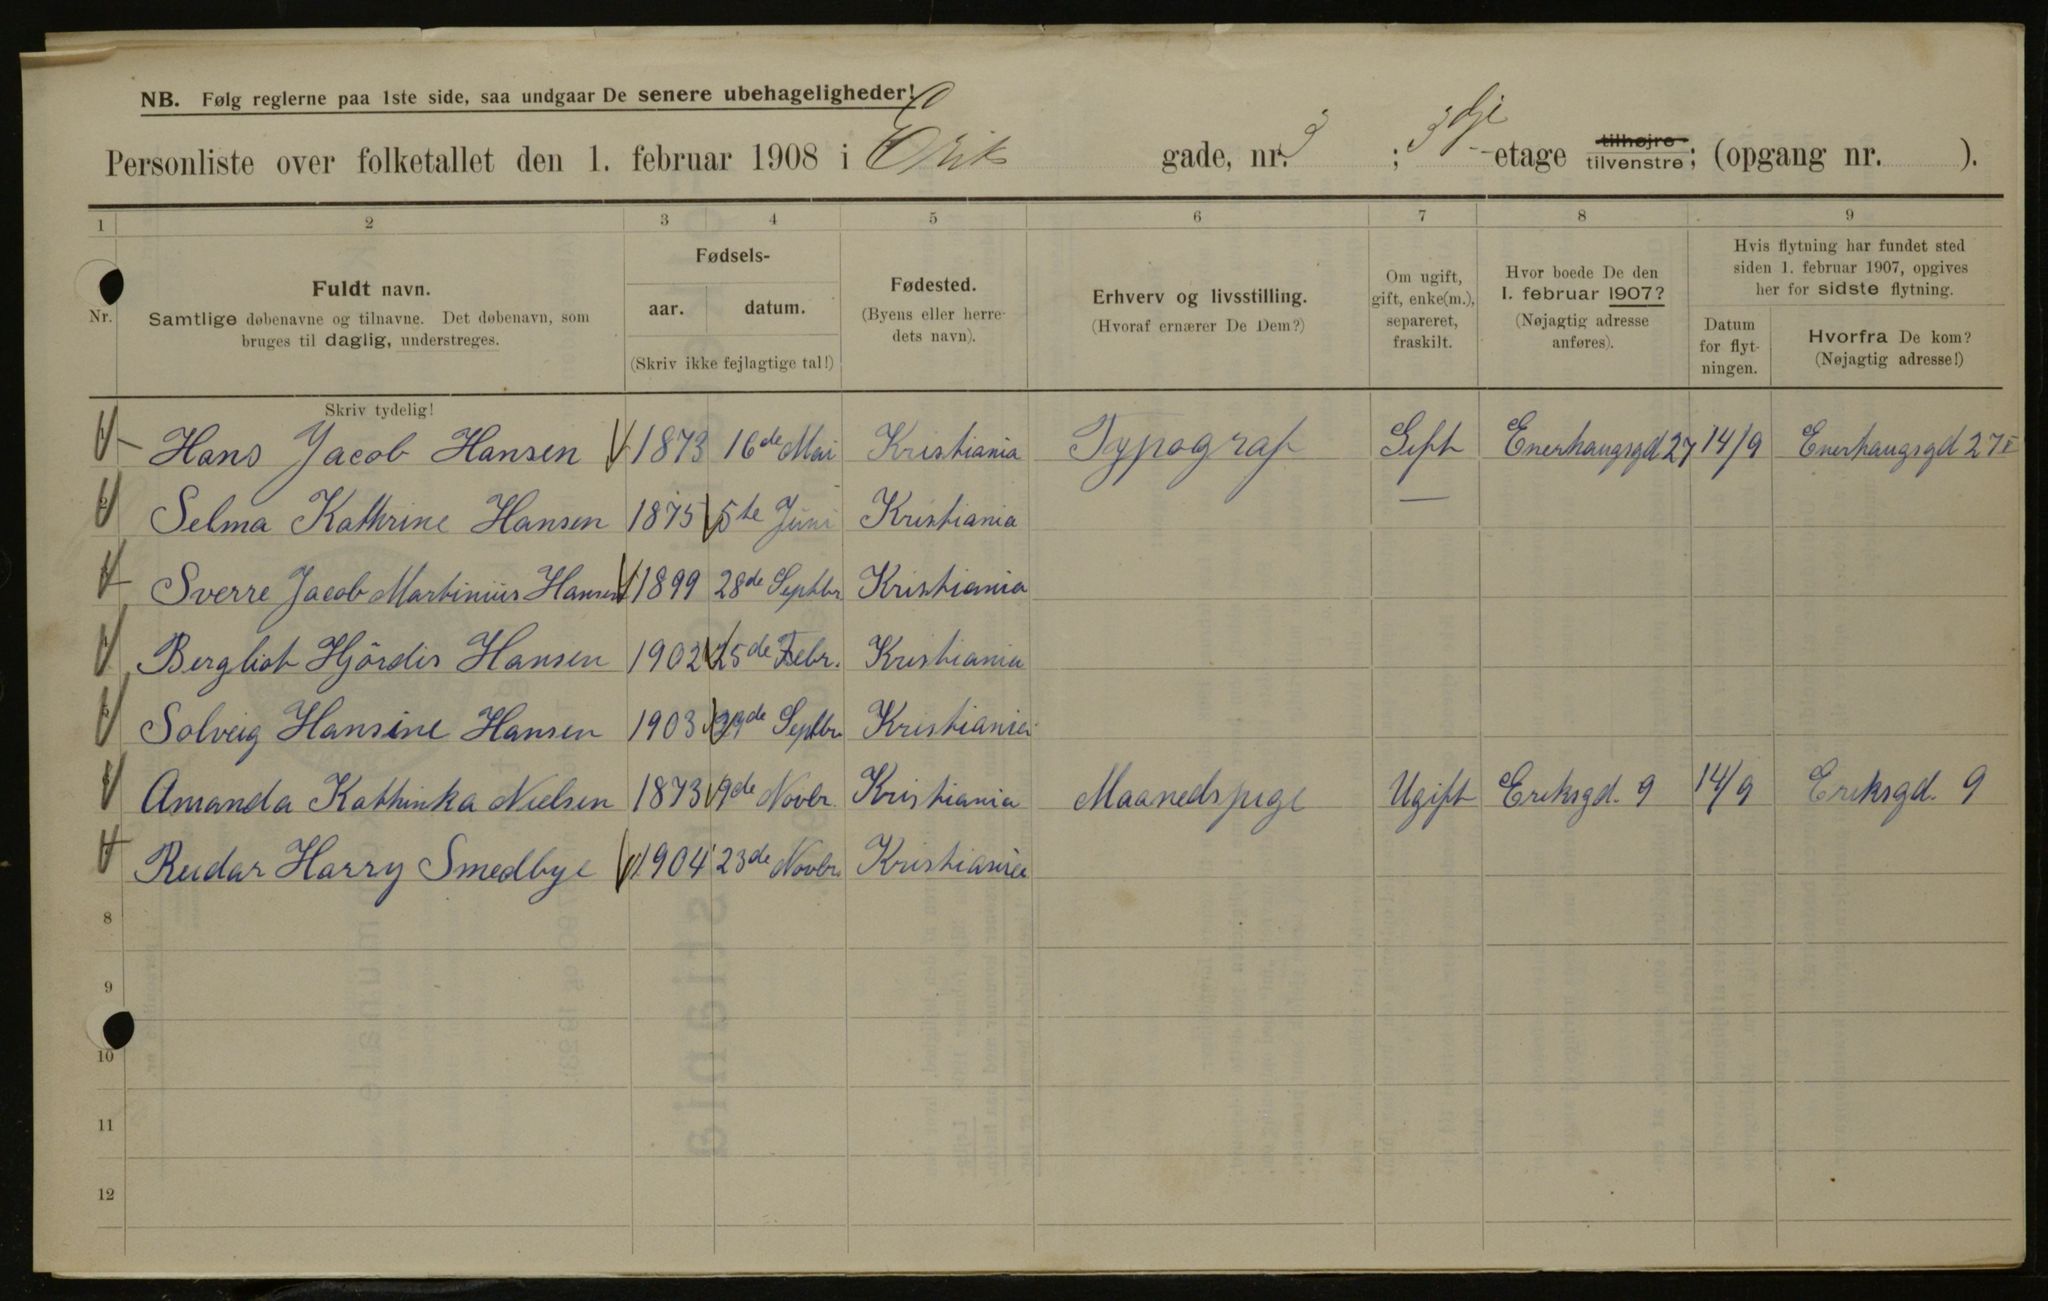 NB. Følg reglerne paa 1ste side, saa undgaar De senere ubehageligheder!
Personliste over folketallet den 1. februar 1908 i Eriks gade, nr. 3 ; 3dje etage tilhøjre tilvenstre; (opgang nr. ).
1 2 3 4 5 6 7 8 9
Nr.
Fuldt navn.
Samtlige døbenavne og tilnavne. Det døbenavn, som
bruges til daglig, understreges.
Skriv tydelig!
Fødsels-
aar. datum.
(Skriv ikke fejlagtige tal!)
Fødested.
(Byens eller herre-
dets navn).
Erhverv og livsstilling.
(Hvoraf ernærer De Dem?)
Om ugift,
gift, enke(m.),
separeret,
fraskilt.
Hvor boede De den
1. februar 1907?
(Nøjagtig adresse
anføres).
Hvis flytning har fundet sted
siden 1. februar 1907, opgives
her for sidste flytning.
Datum
for flyt-
ningen.
Hvorfra De kom?
(Nøjagtig adresse!)
Hans Jacob Hansen 1873 16de Mai Kristiania Typograf Gift Enerhaugsgd 27 14/9 Enerhaugsgd 27 I
Selma Kathrine Hansen 1875 5te Juni Kristiania —
Sverre Jacob Martinius Hansen 1899 28de Septbr Kristiania
Bergliot Hjördis Hansen 1902 25de Febr. Kristiania
Solveig Hansine Hansen 1903 29de Septbr. Kristiania
Amanda Kathinka Nielsen 1873 9de Novbr. Kristiania Maanedspige Ugift Eriksgd. 9 14/9 Eriksgd. 9
Reidar Harry Smedbye 1904 23de Novbr. Kristiania
8
9
10
11
12